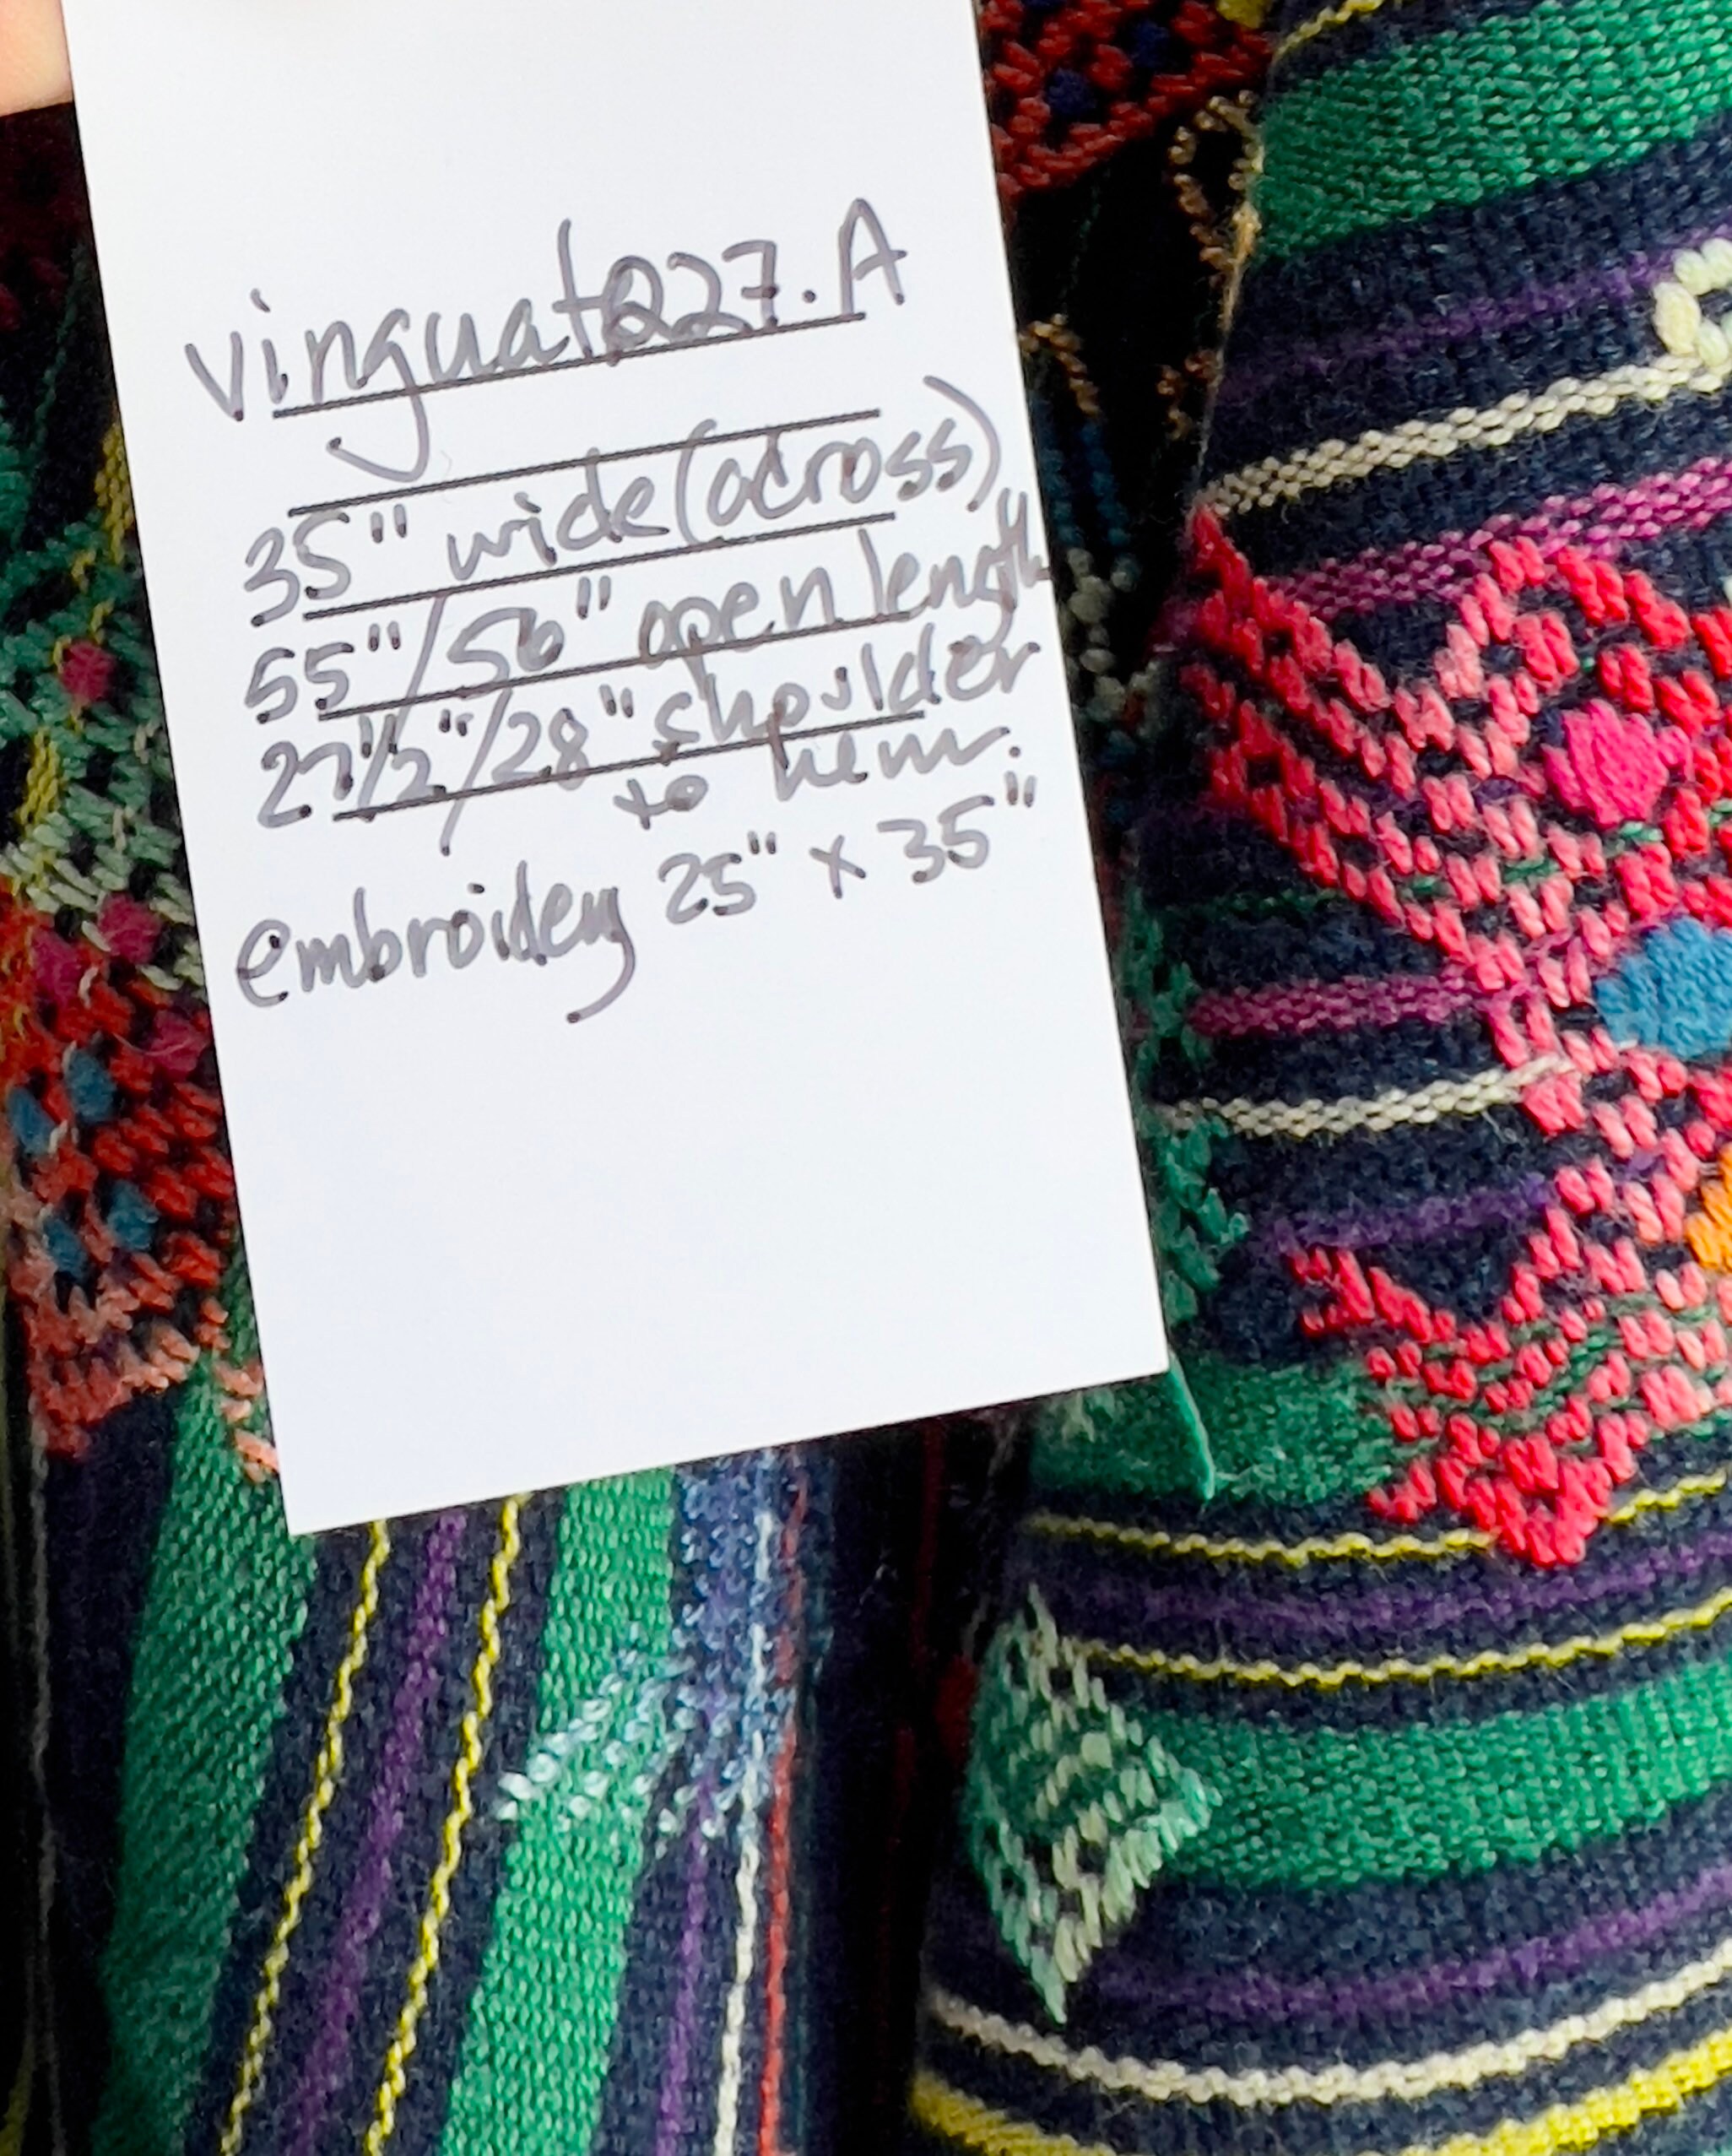 vinguat227.A
35" wide (across)
55"/56" open length
27 1/2"/28" shoulder
to hem.
embroidery 25" x 35"